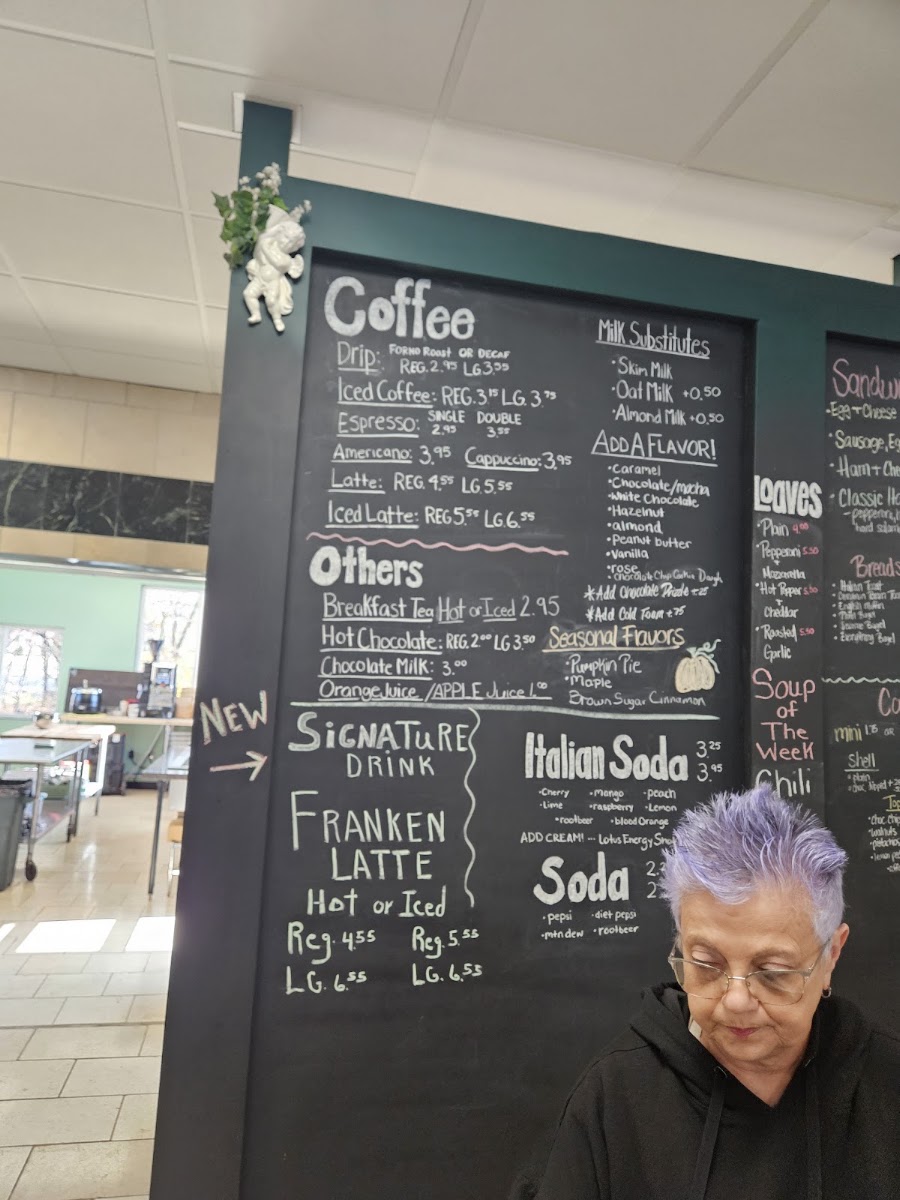 Coffee
Drip: FORNO ROAST OR DECAF
REG. 2.95 LG 3.55
Iced Coffee: REG. 3.15 LG. 3.75
Espresso: SINGLE DOUBLE
2.95 3.55
Americano: 3.95 Cappuccino: 3.95
Latte: REG. 4.55 LG 5.55
Iced Latte: REG 5.55 LG 6.55
Others
Breakfast Tea Hot or Iced 2.95
Hot Chocolate: REG. 2.00 LG 3.50
Chocolate Milk: 3.00
Orange Juice / APPLE Juice 1.00
NEW
SIGNATURE
DRINK
FRANKEN
LATTE
Hot or Iced
Reg. 4.55 Reg. 5.55
LG. 6.55 LG. 6.55
Milk Substitutes
• Skim Milk
• Oat Milk +0.50
• Almond Milk +0.50
ADD A FLAVOR!
• Caramel
• Chocolate/mocha
• White Chocolate
• Hazelnut
• almond
• Peanut butter
• Vanilla
• rose
• Chocolate Chip Cookie Dough
*Add Chocolate
*Add Cold Foam +.75
Seasonal Flavors
• Pumpkin Pie
• Maple
Brown Sugar Cinnamon
Italian Soda 3.25
3.95
• Cherry • Mango • peach
• Lime • raspberry • Lemon
• rootbeer • blood Orange
ADD CREAM! -- Lotus Energy
Soda
• pepsi • diet pepsi
• mtn dew • rootbeer
Loaves
• Plain 4.00
• Pepperoni 5.50
+
Mozzarella
• Hot Pepper 5.50
+
Cheddar
• Roasted 5.50
Garlic
Soup
of
The
Week
Chili
Sandw
• Egg + Cheese
Sausage, Eg
• Ham + Che
• Classic
pepperoni,
hard salam
Breads
English Muffin
Everything Bagel
mini
Shell
• plain
• walnuts
• pistachios